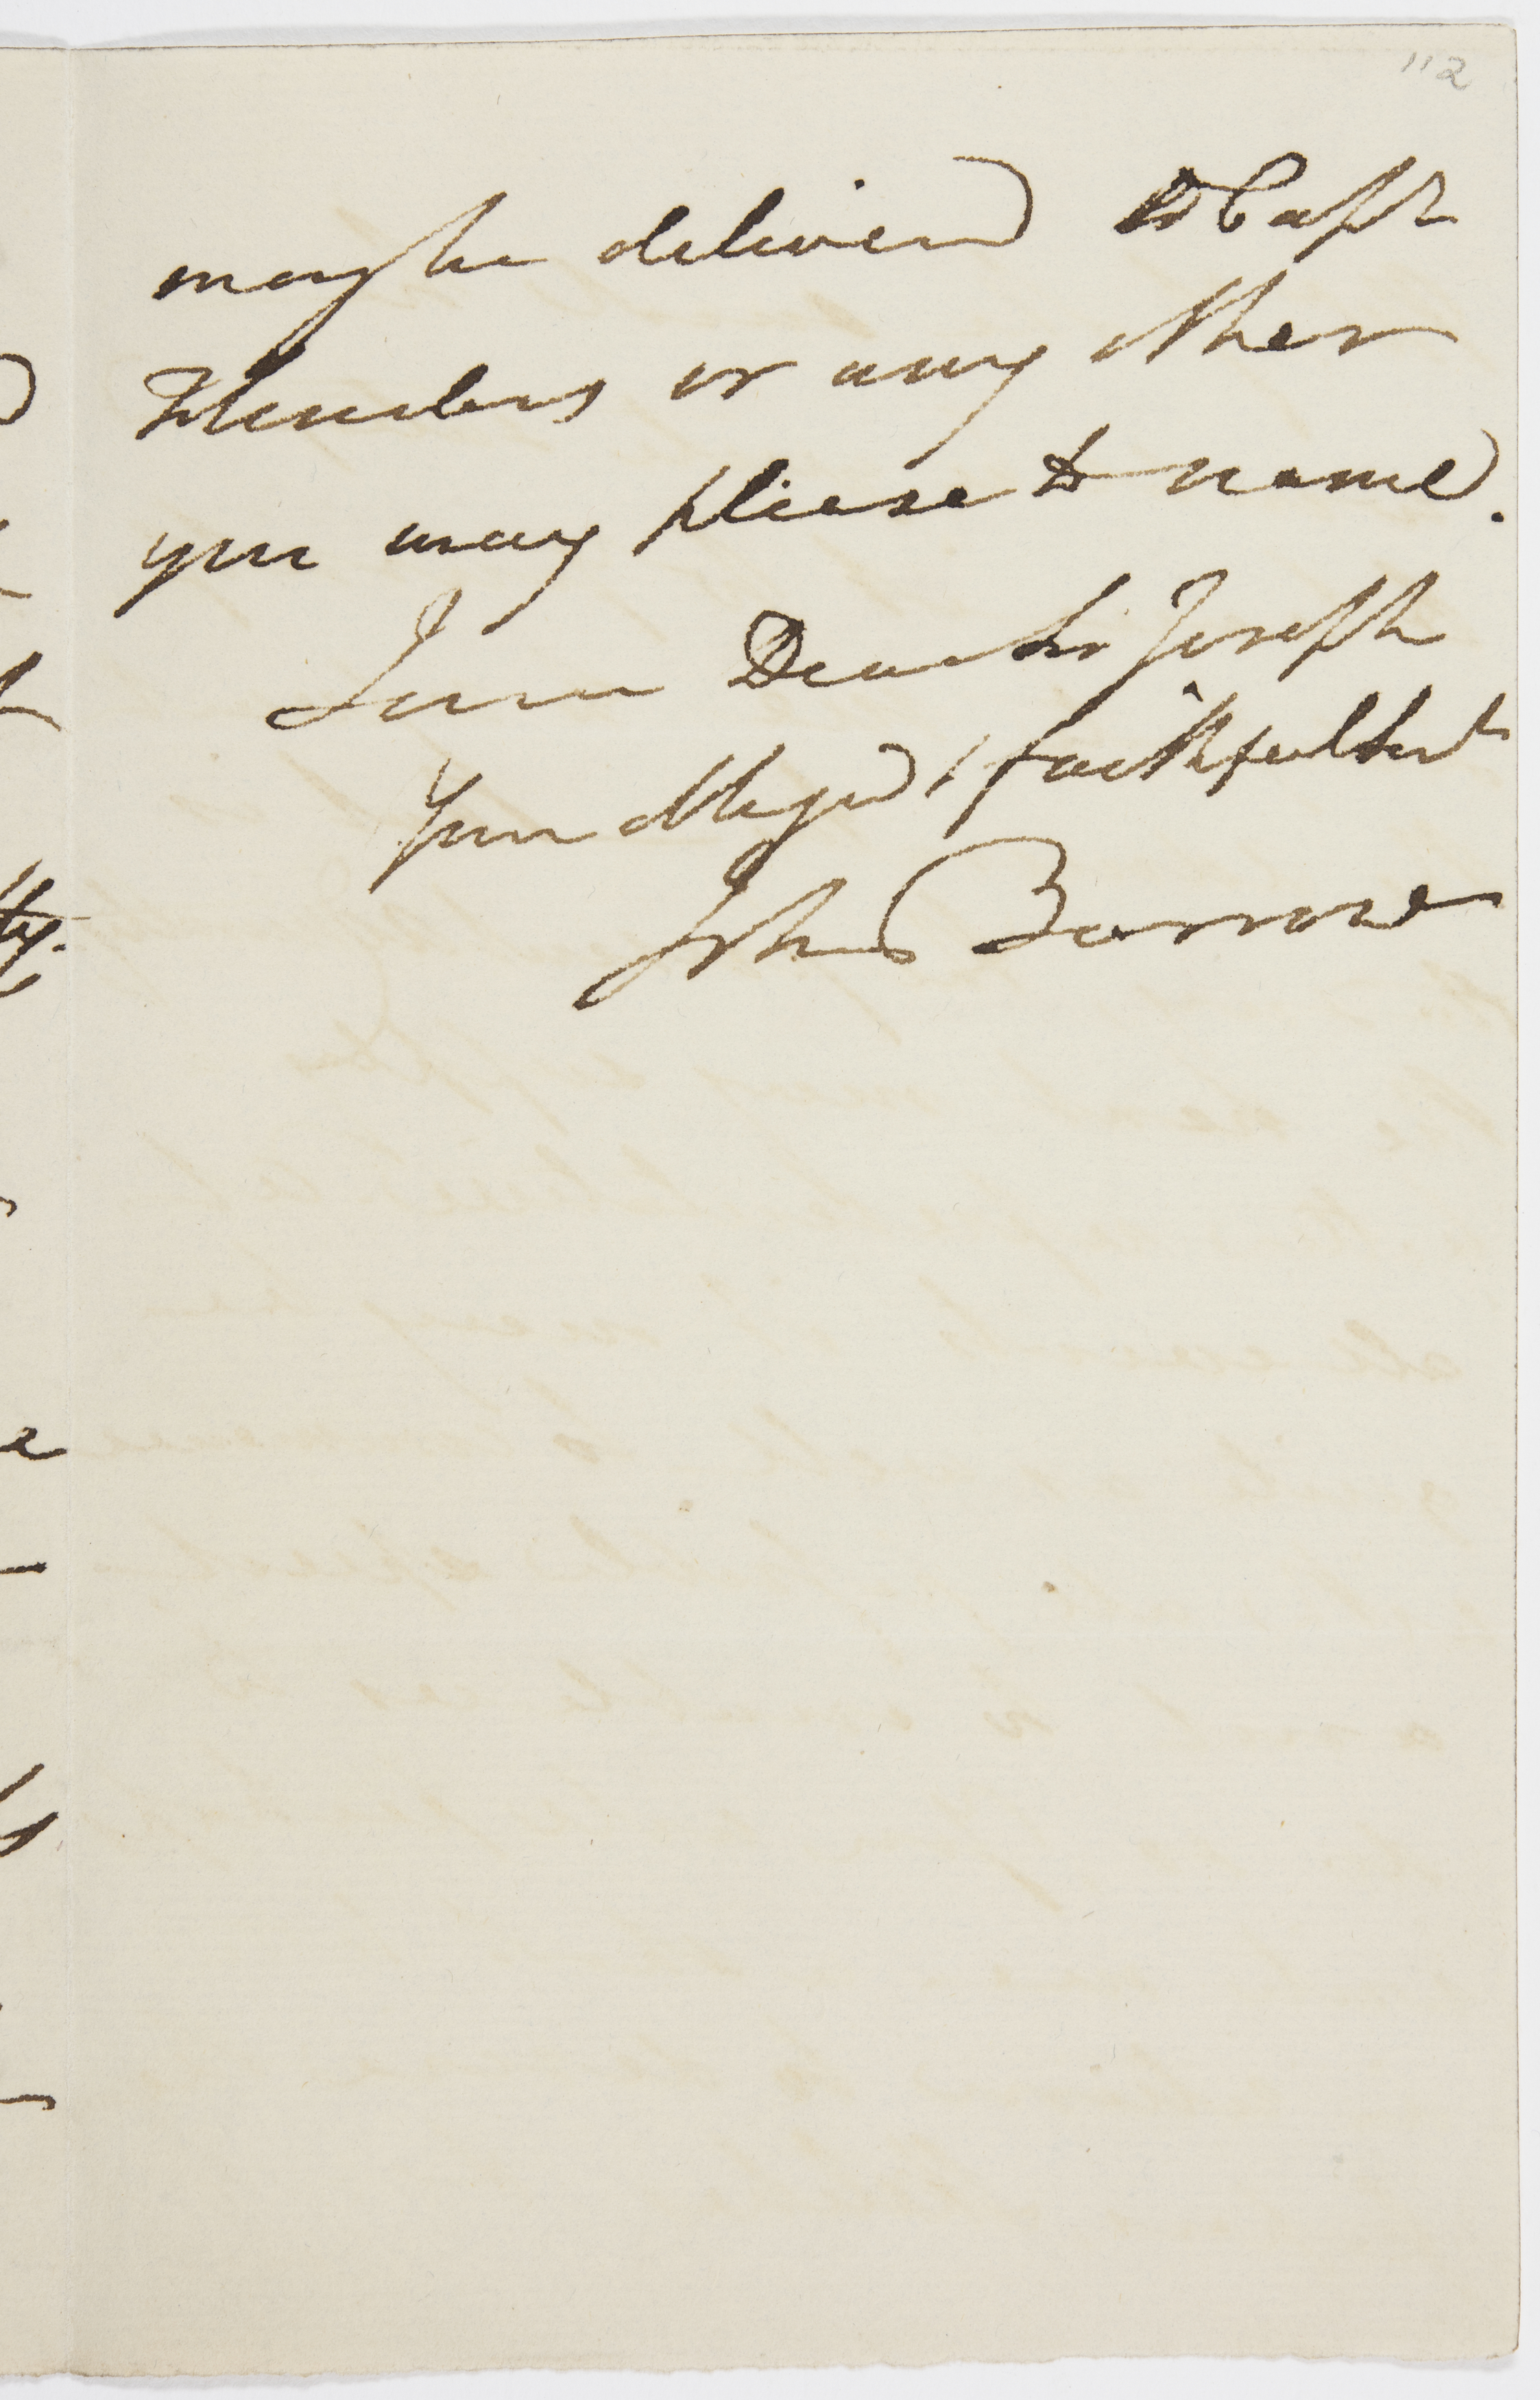 112
may be delivered to Capt
Flinders or any other
you may please to name.
I am Dear Sir Joseph
Your obliged & faithful Servt
John Barrow